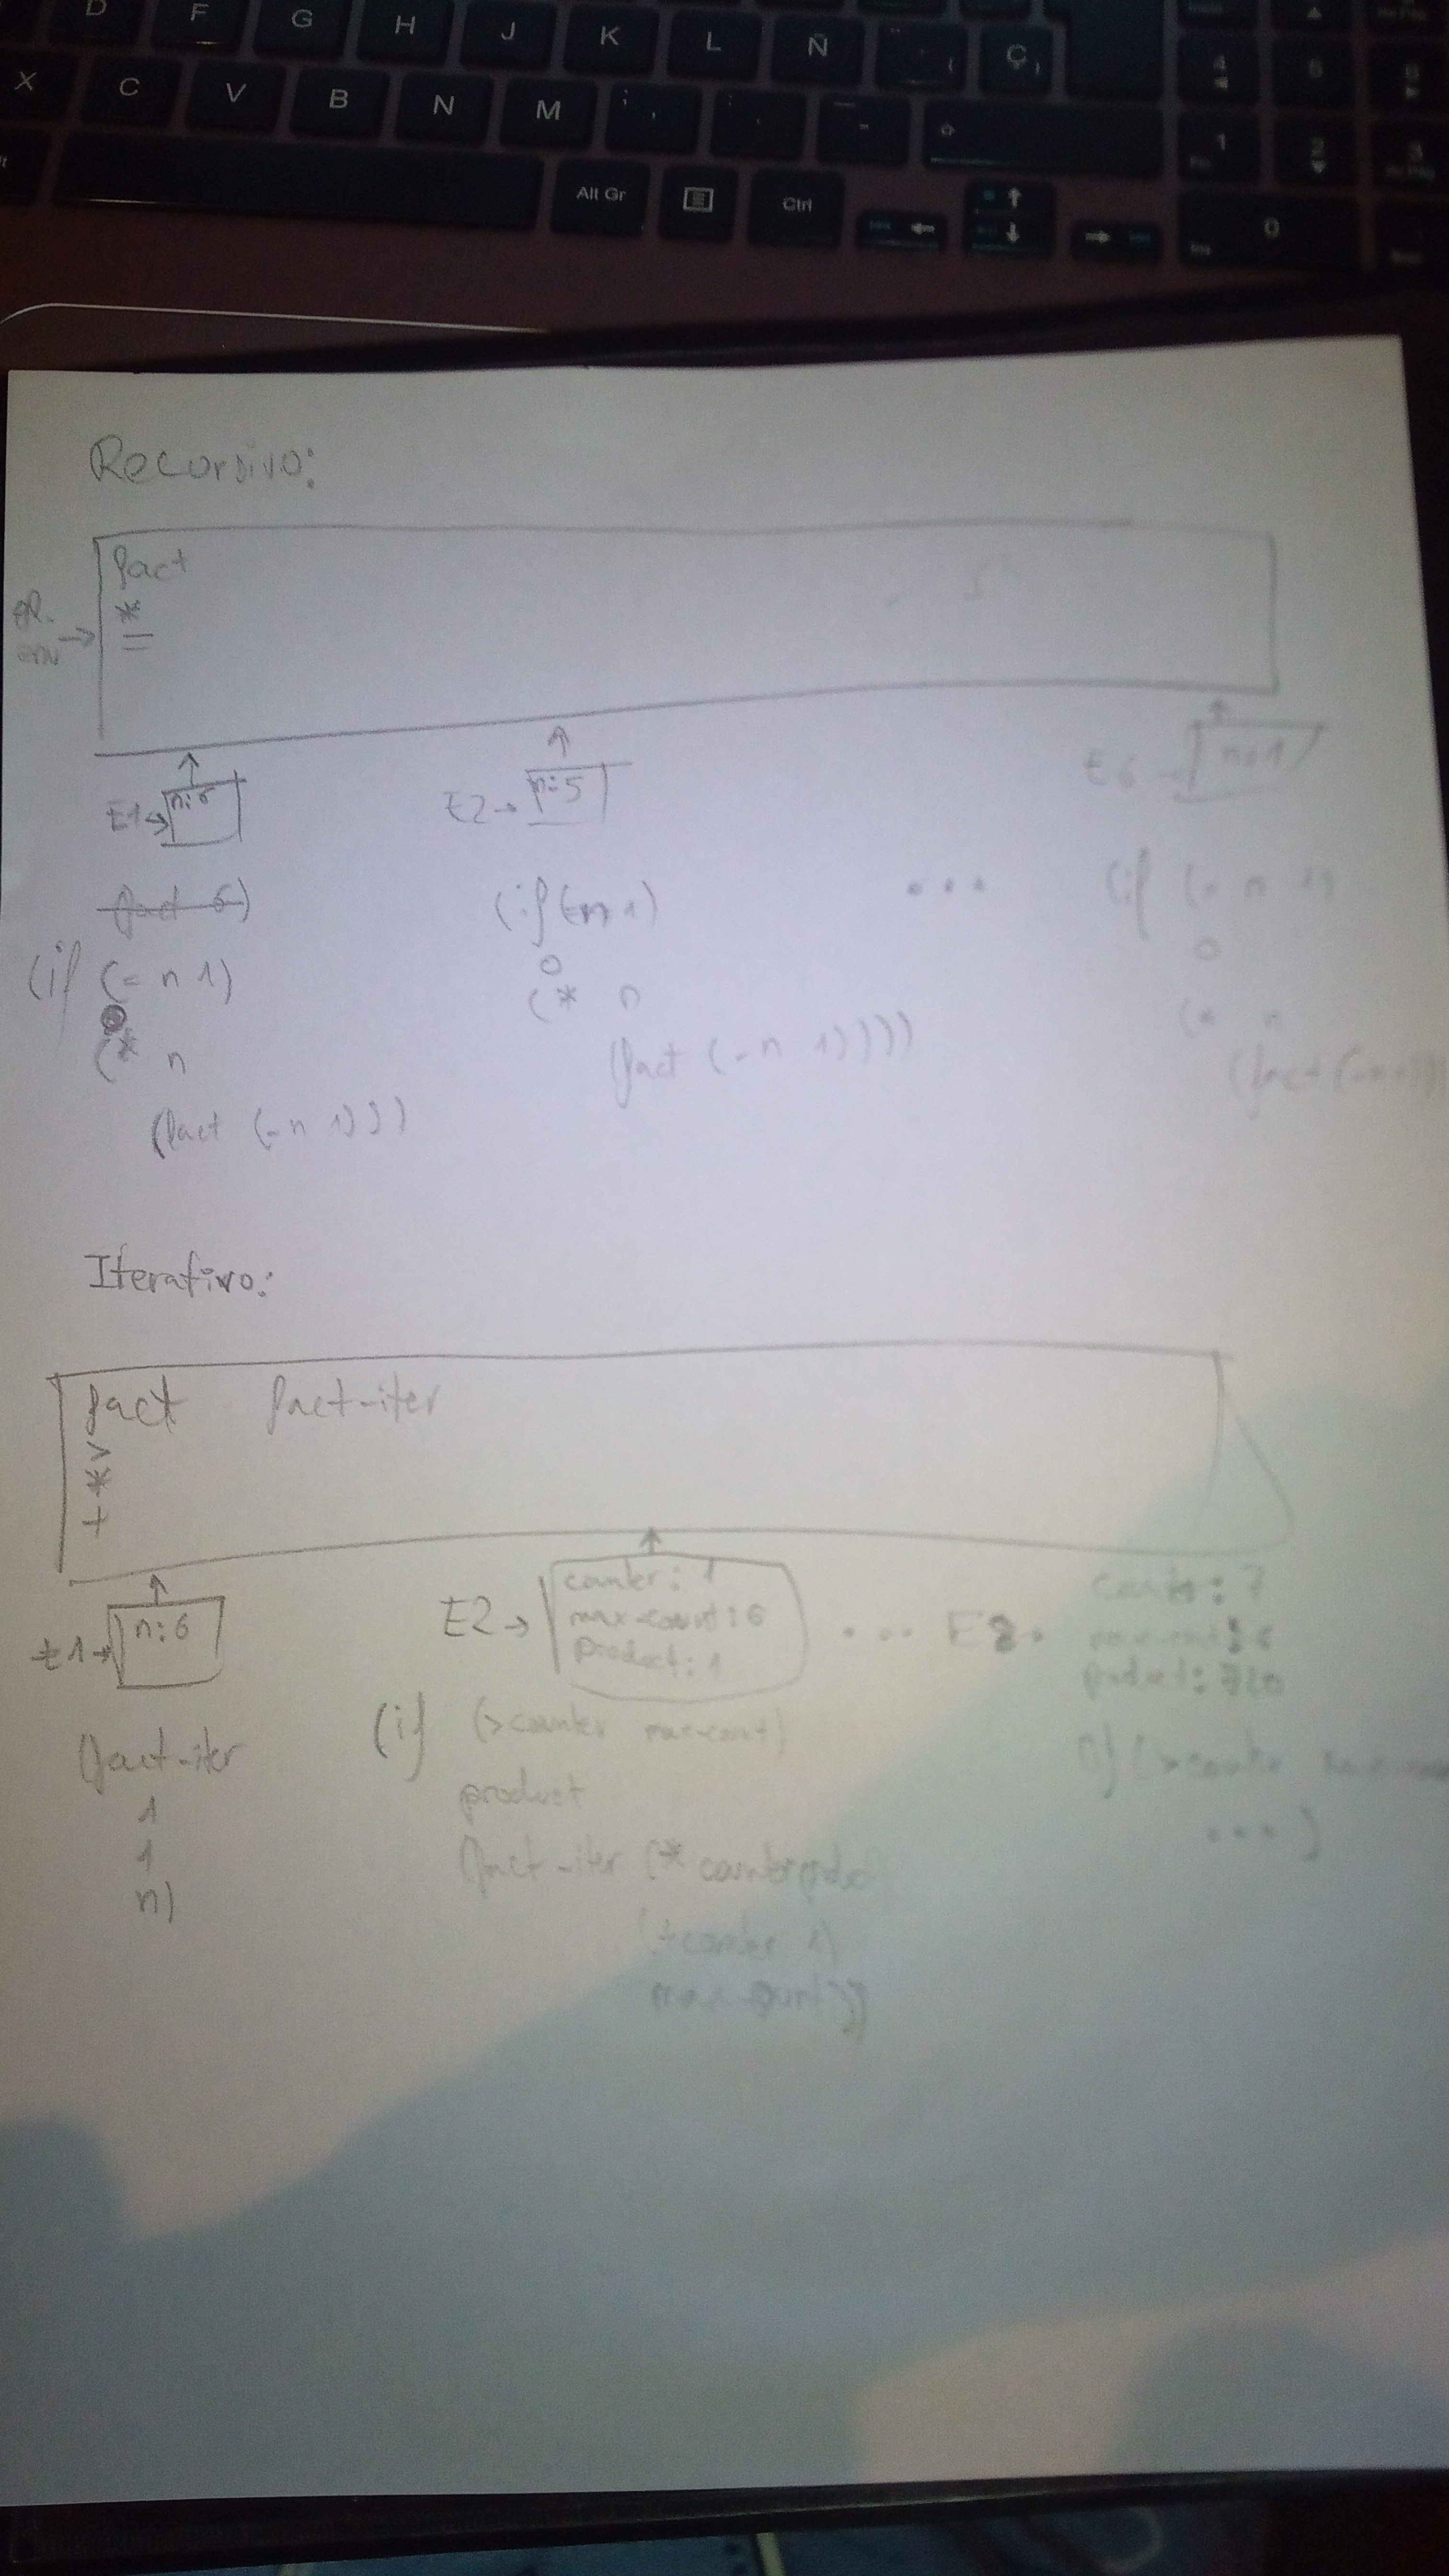 D F G H J K L Ñ Ç
X C V B N M
Alt Gr Ctrl 0
4
1 2 3
Recursivo:
fact
*
=
E1→ n:6
E2→ n:5
E6→ n:1
(fact 6)
(if (= n 1)
(* n
(fact (- n 1)))
(if (= n 1)
0
(* n
(fact (- n 1))))
...
(if (= n 1)
0
(* n
(fact (- n 1)))
Iterativo:
fact fact-iter
>
*
+
E1→ n:6
(fact-iter
1
1
n)
E2→ counter: 1
max-count: 6
product: 1
(if (>counter max-count)
product
(fact-iter (* counter
(+counter 1)
max-count))
... E8→
counter: 7
product: 720
(if (>counter
...)